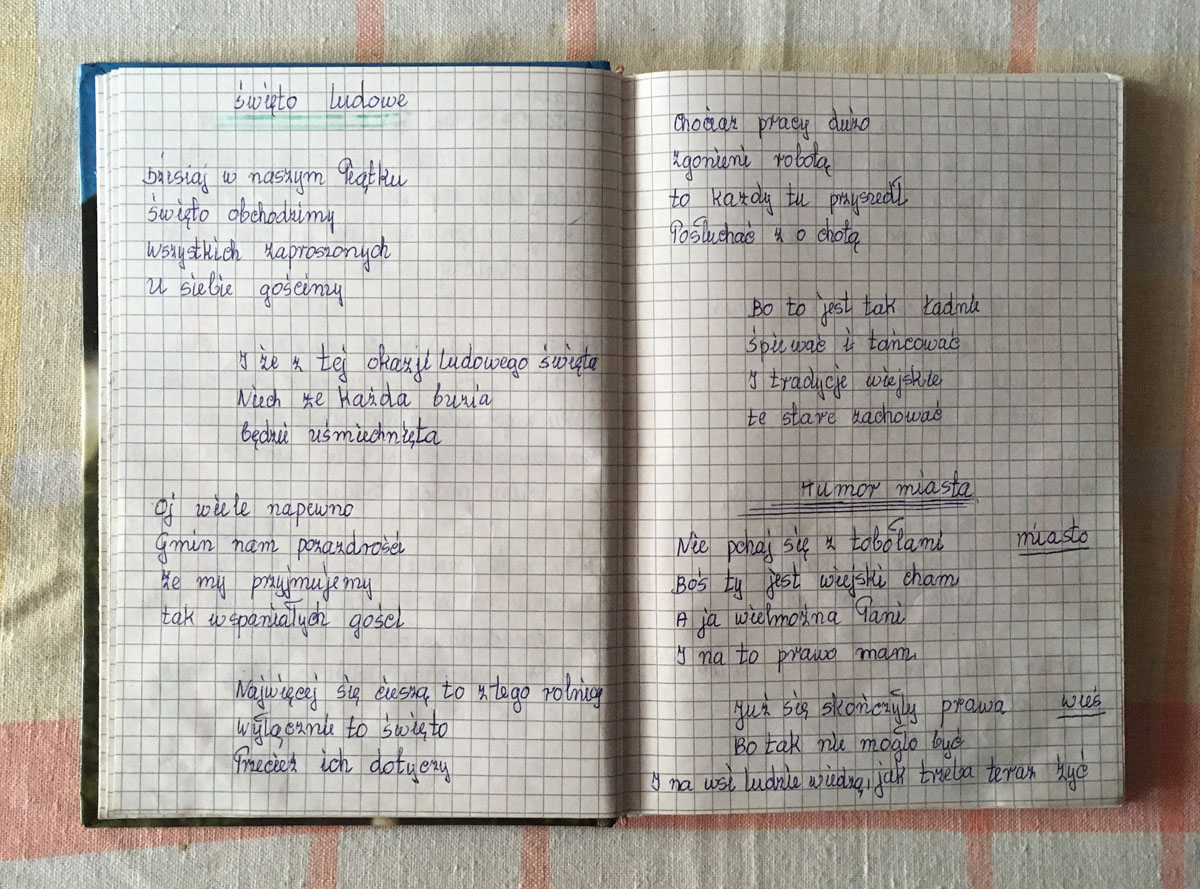 Święto ludowe
Dzisiaj w naszym Piątku
święto obchodzimy
wszystkich zaproszonych
U siebie gościmy
I że z tej okazji ludowego święta
Niech że każda buzia
będzie uśmiechnięta
Oj wiele napewno
Gmin nam pozazdrości
że my przyjmujemy
tak wspaniałych gości
Najwięcej się cieszą to z tego rolnicy
wyłącznie to święto
Przecież ich dotyczy
Chociaż pracy dużo
zgonieni robotą
to każdy tu przyszedł
Posłuchać z o chotą
Bo to jest tak ładnie
śpiewać i tańcować
I tradycje wiejskie
te stare zachować
Humor miasta
Nie pchaj się z tobołami miasto
Boś ty jest wiejski cham
A ja wielmożna Pani
I na to prawo mam
Już się skończyły prawa wieś
Bo tak nie mogło być
I na wsi ludzie wiedzą, jak trzeba teraz żyć